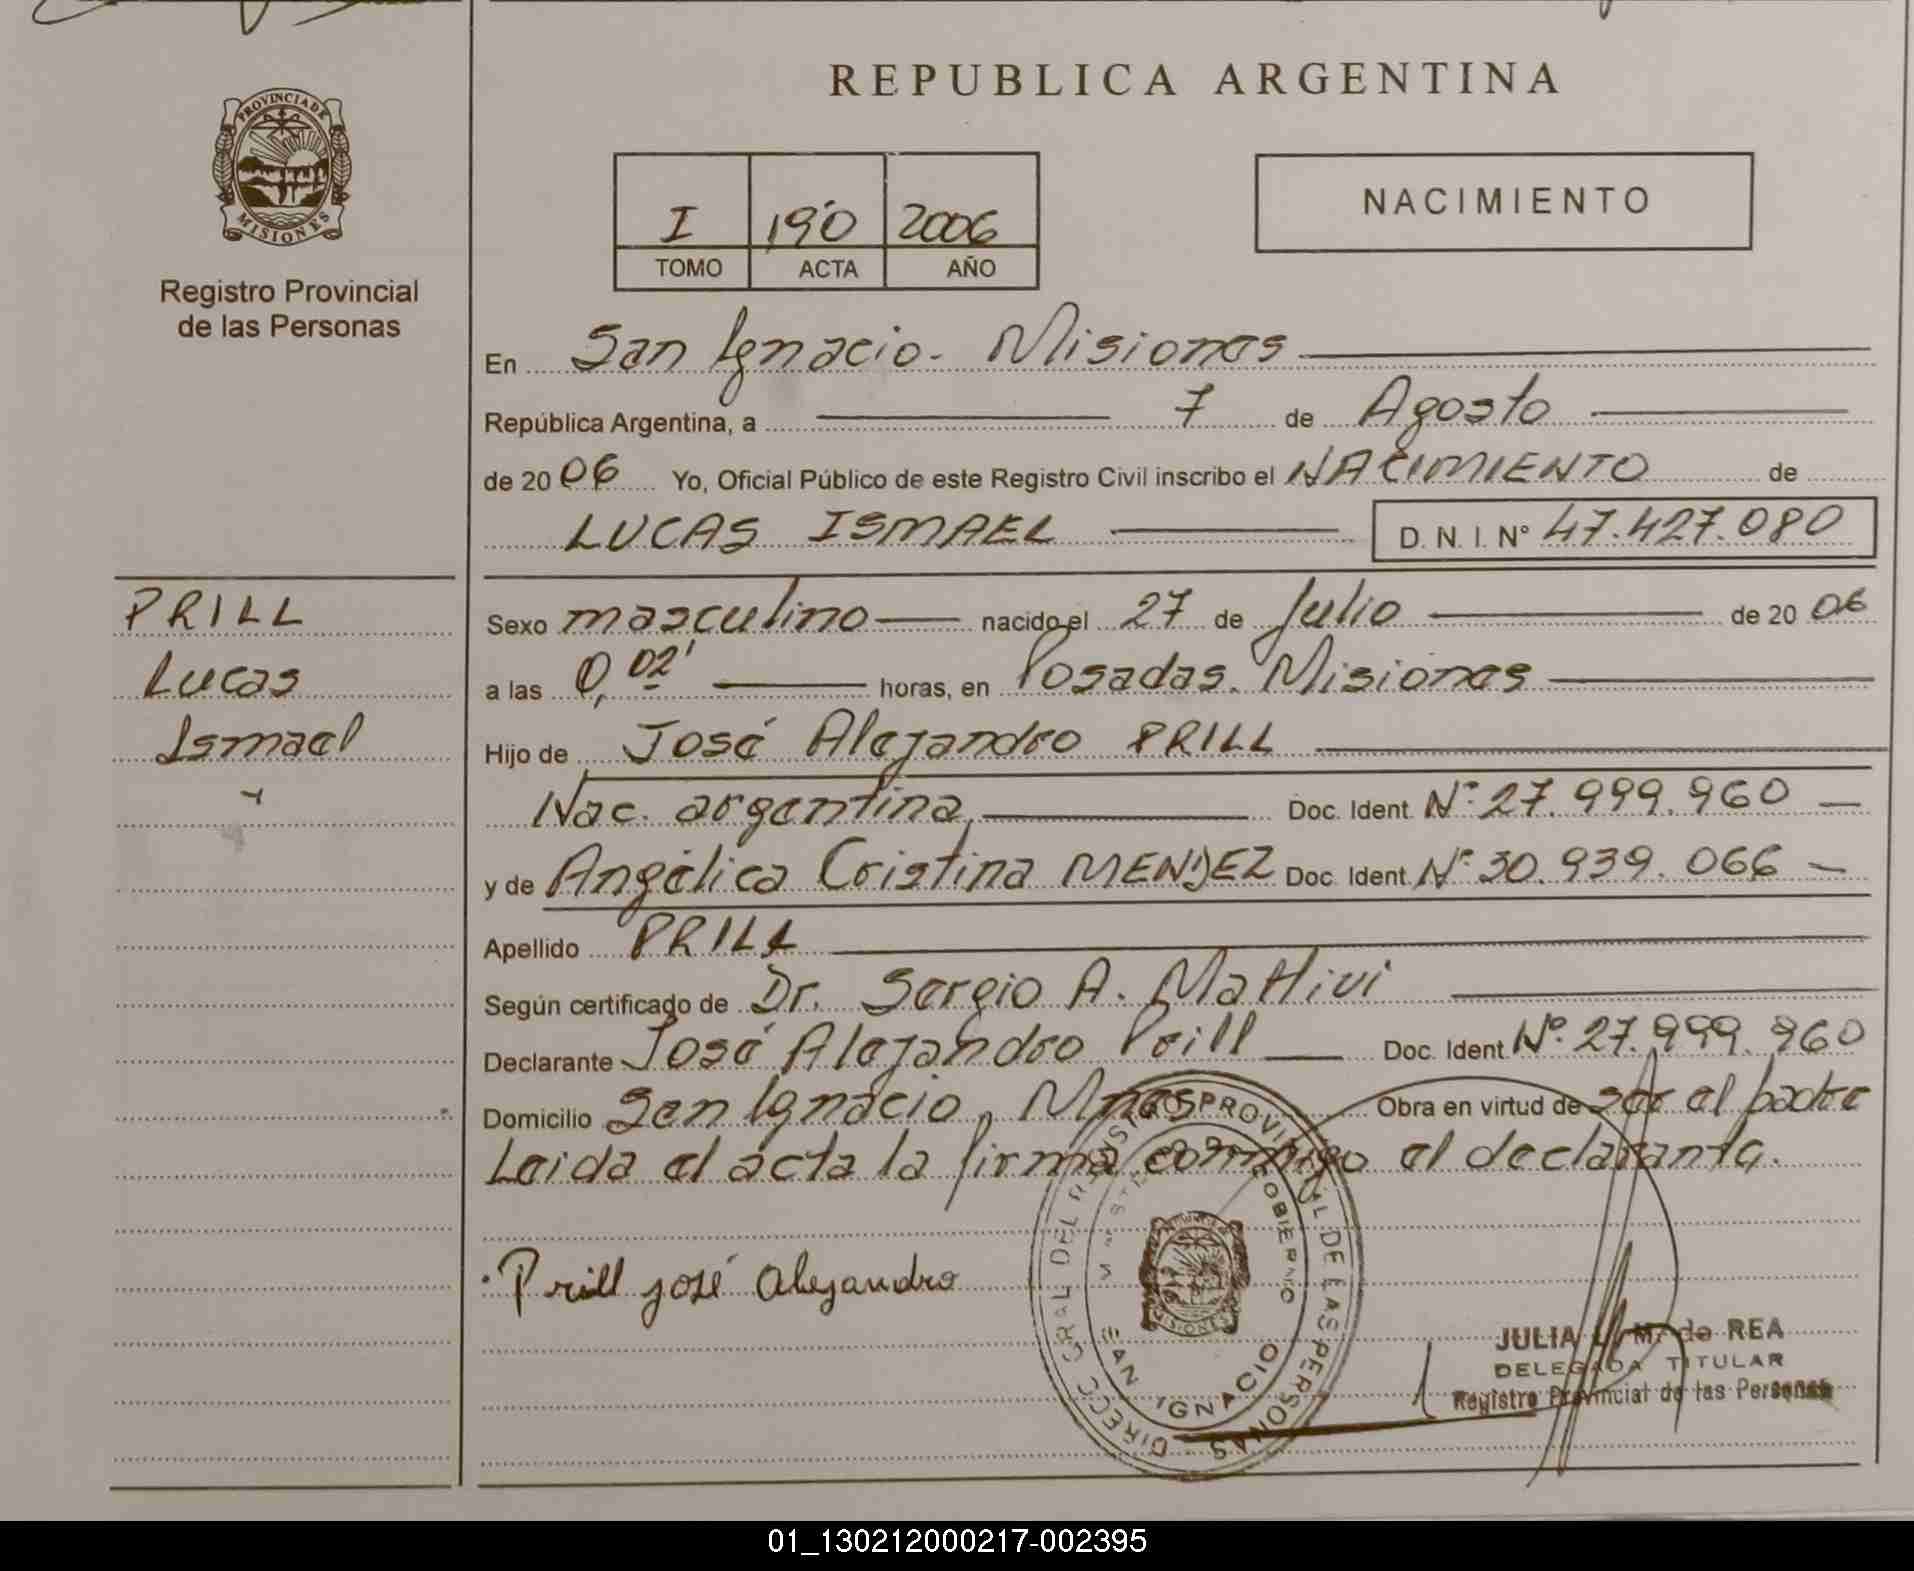 REPUBLICA ARGENTINA
PROVINCIA DE
MISIONES
Registro Provincial
de las Personas
I 190 2006
TOMO ACTA AÑO
NACIMIENTO
En San Ignacio - Misiones
República Argentina, a 7 de Agosto
de 2006 Yo, Oficial Público de este Registro Civil inscribo el NACIMIENTO de
LUCAS ISMAEL D. N. I. Nº 47.427.080
PRILL
Lucas
Ismael
Sexo masculino nacido el 27 de Julio de 2006
a las 0,02' horas, en Posadas. Misiones
Hijo de José Alejandro PRILL
Nac. argentina, Doc. Ident. Nº 27.999.960
y de Angélica Cristina MENDEZ Doc. Ident. Nº 30.939.066
Apellido PRILL
Según certificado de Dr. Sergio A. Mattivi
Declarante José Alejandro Prill Doc. Ident. Nº 27.999.960
Domicilio San Ignacio, Mnes Obra en virtud de ser el padre
Leida el acta la firma conmigo el declarante.
Prill José Alejandro
DIRECC GRAL DEL REGISTRO PROVINCIAL DE LAS PERSONAS
GOBIERNO
SAN IGNACIO
MISIONES
JULIA M. de REA
DELEGADA TITULAR
Registro Provincial de las Personas
01_130212000217-002395